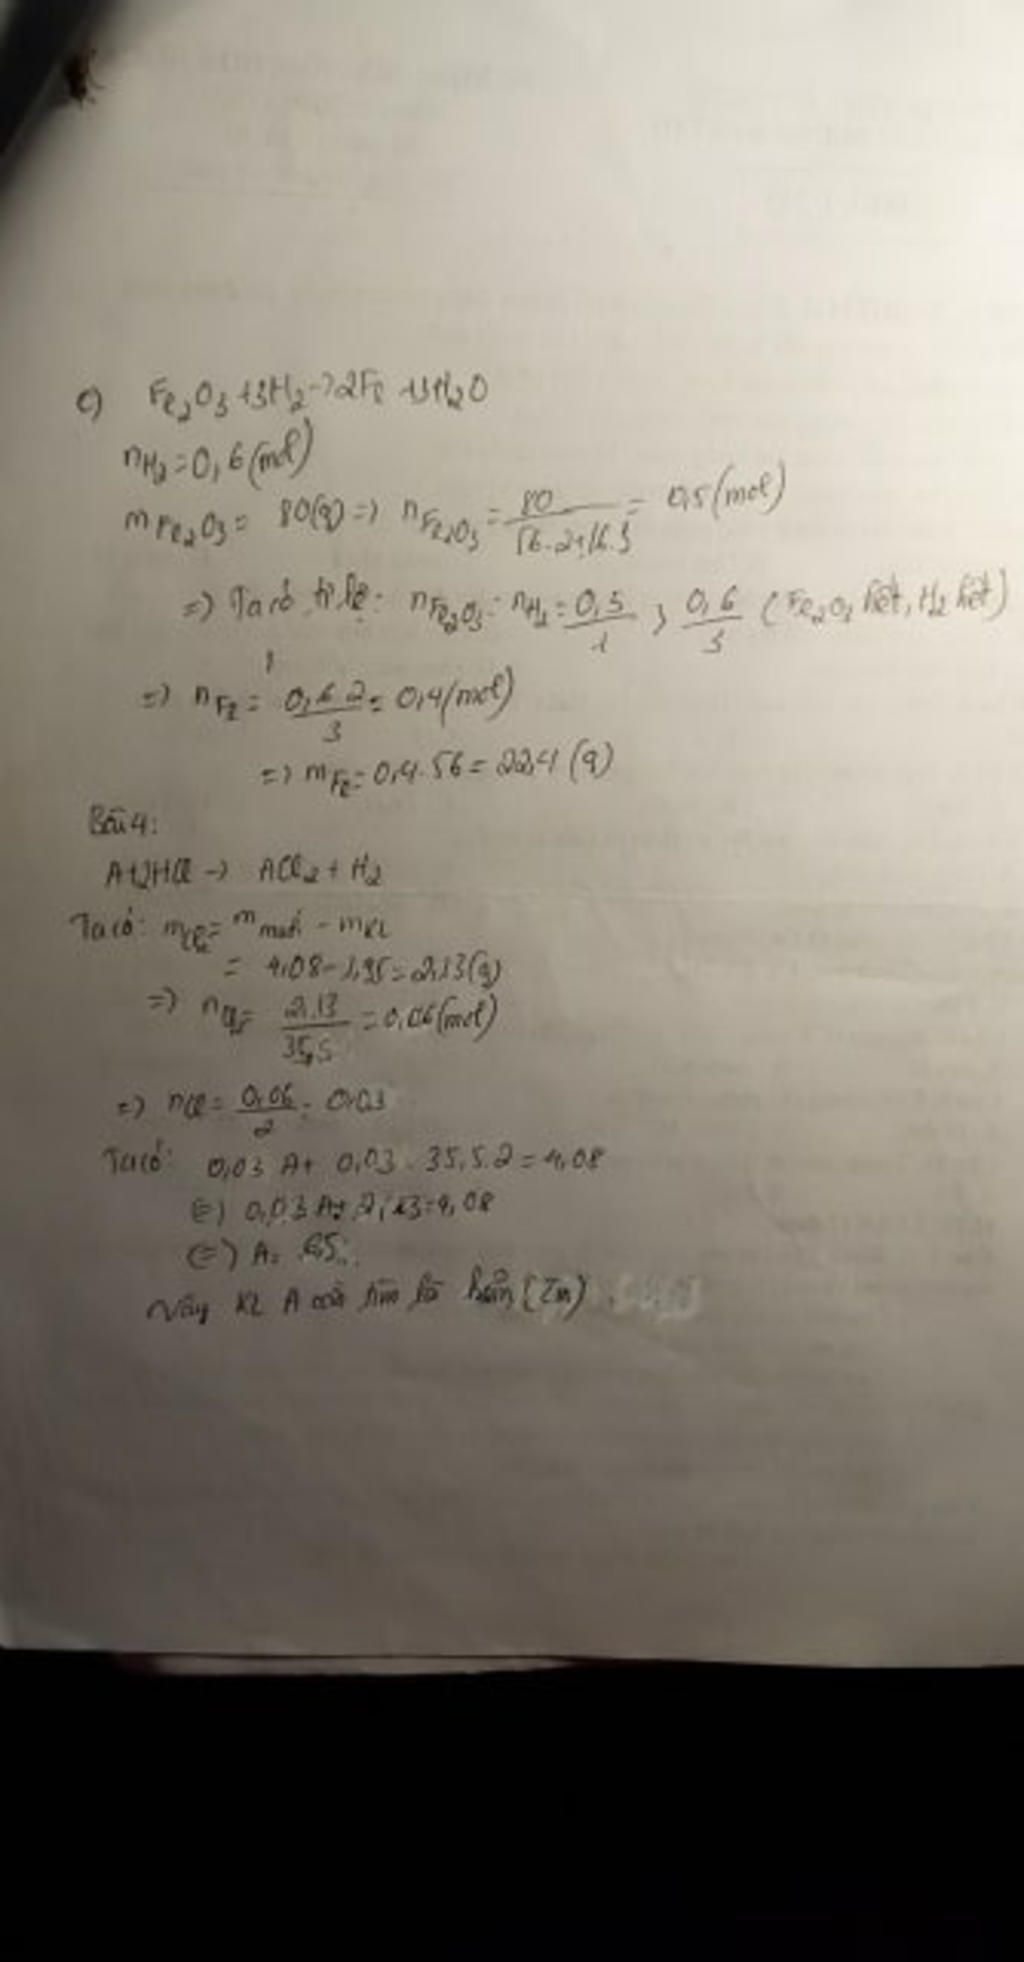 c) Fe2O3 + 3H2 -> 2Fe + 3H2O
nH2 = 0,6 (mol)
mFe2O3 = 80(g) => nFe2O3 = 80/(56.2+16.3) = 0,5 (mol)
=> Ta có tỉ lệ: nFe2O3 : nH2 = 0,5/1 > 0,6/3 (Fe2O3 hết, H2 hết)
=> nFe = 0,6.2/3 = 0,4 (mol)
=> mFe = 0,4.56 = 22,4 (g)
Bài 4:
A + 2HCl -> ACl2 + H2
Ta có: mCl2 = m muối - mKL
= 4,08 - 1,95 = 2,13 (g)
=> nCl2 = 2,13/35,5 = 0,06 (mol)
=> nCl = 0,06/2 = 0,03
Ta có: 0,03 A + 0,03 . 35,5.2 = 4,08
<=> 0,03 A + 2,13 = 4,08
<=> A = 65
Vậy KL A cần tìm là kẽm (Zn)